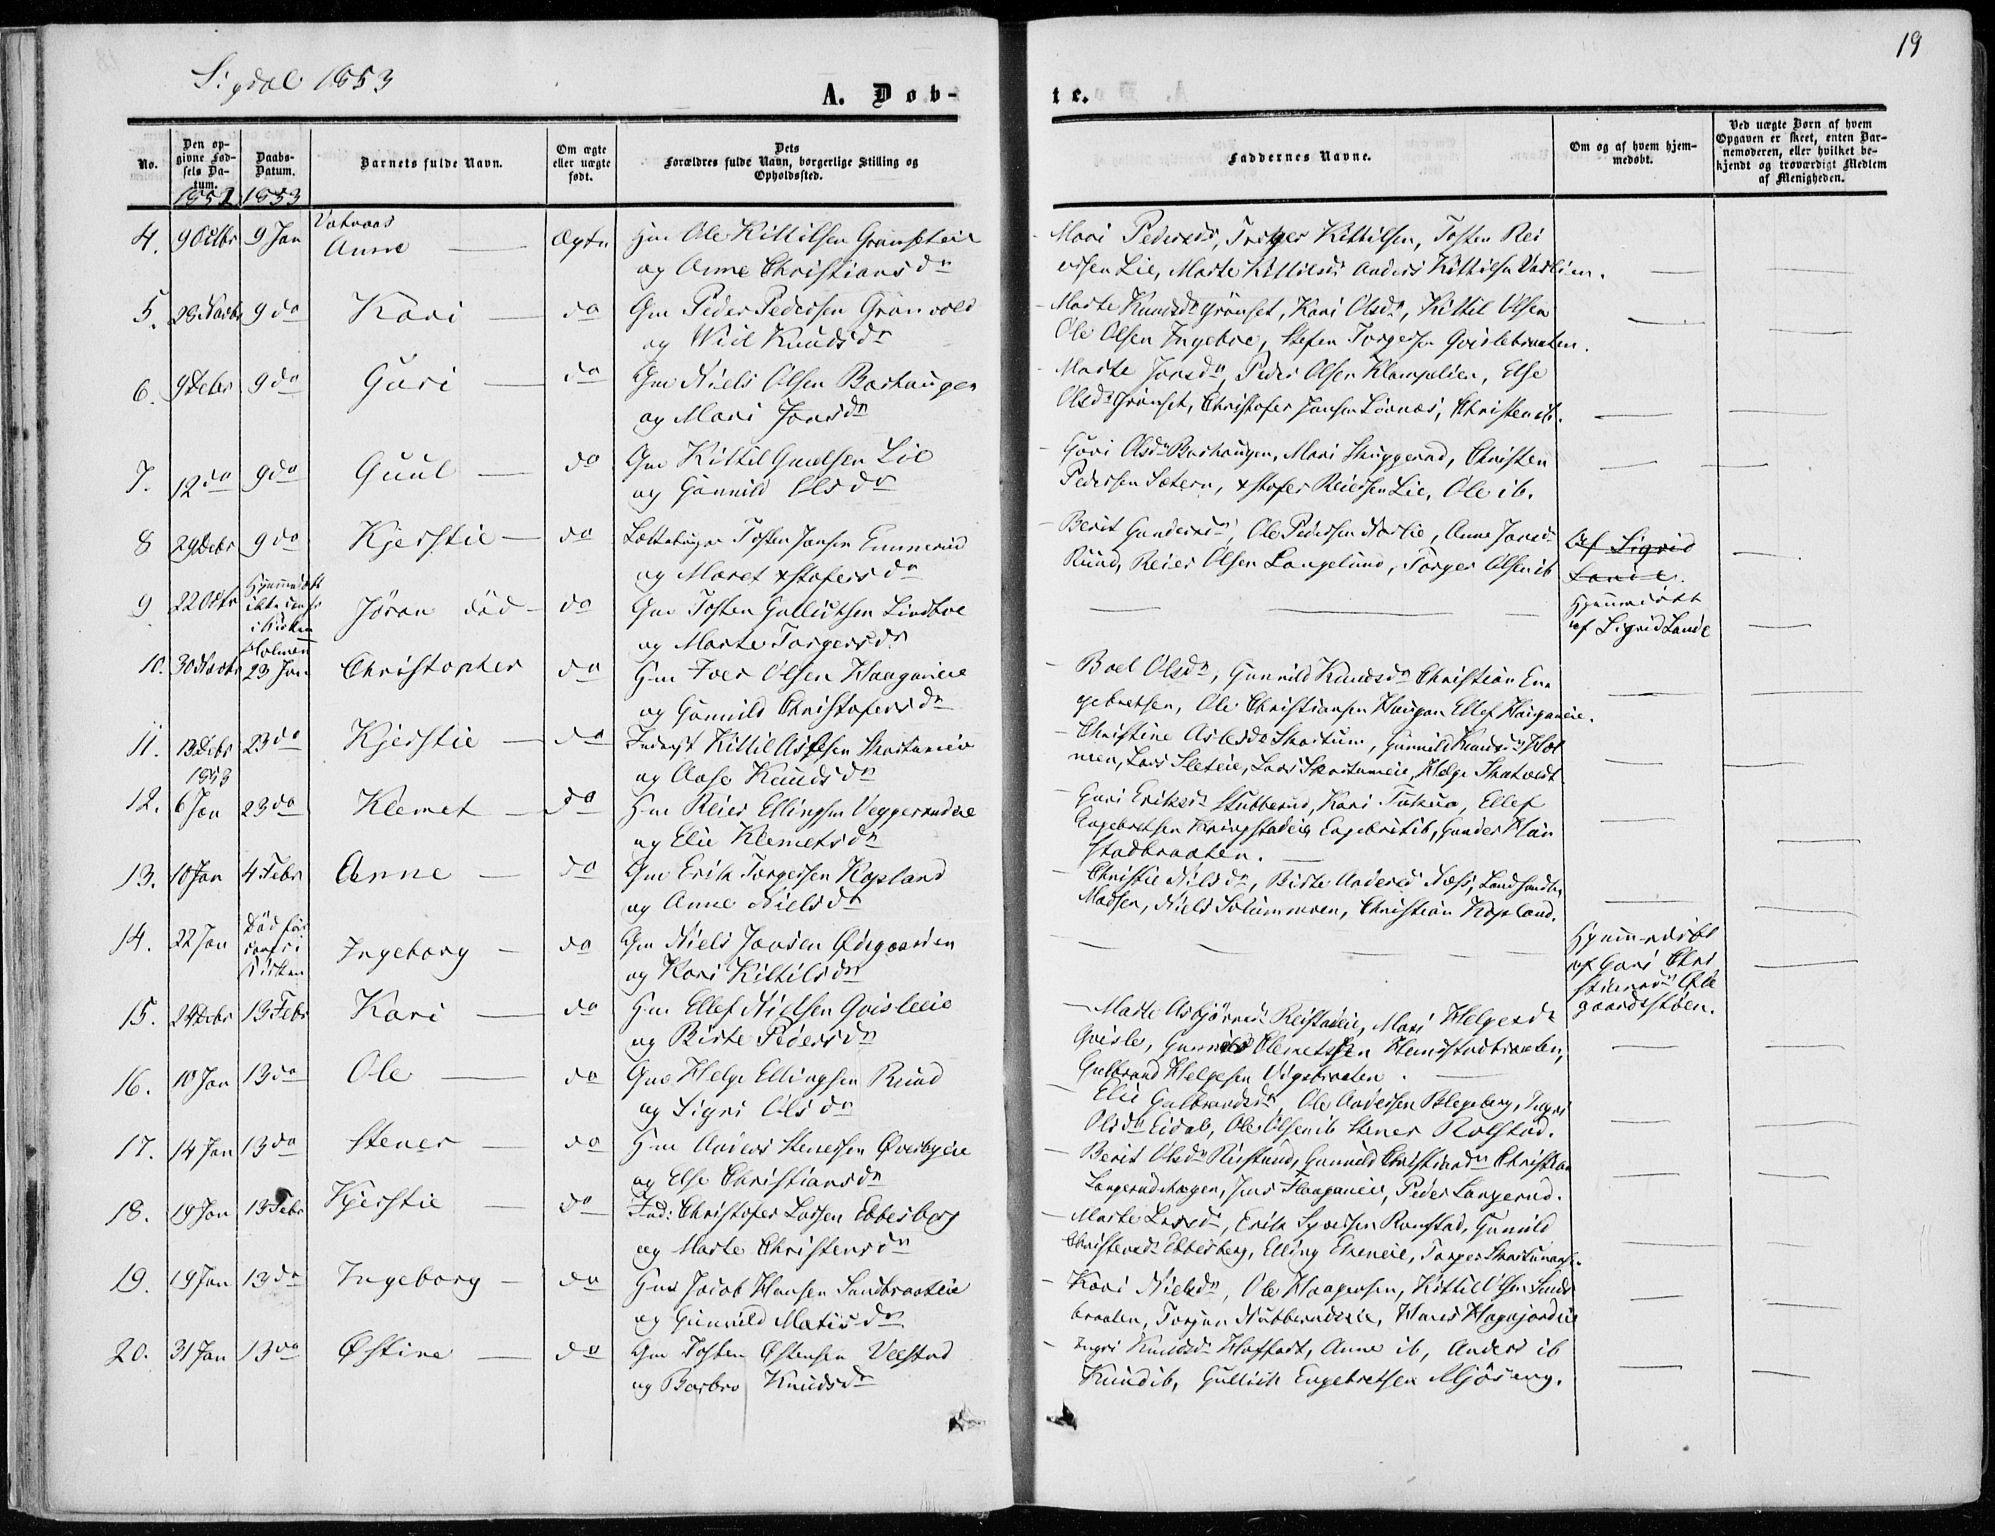 Sigdal 1853
19
A. Døb-
te.
No.
Den op-
givne Fød-
sels Da-
tum.
Daabs-
Datum.
Barnets fulde Navn.
Om ægte
eller uægte
født.
Dets
Forældres fulde Navn, borgerlige Stilling og
Opholdssted.
Faddernes Navne.
Om og af hvem hjem-
medøbt.
Ved uægte Børn af hvem
Opgaven er skeet, enten Bar-
nemoderen, eller hvilket be-
kjendt og troværdigt Medlem
af Menigheden.
1852 1853
4. 9 Octbr 9 Jan Anne Ægte Hm Ole Kittilsen Grønseteie
og Anne Christiansdr
Mari Pedersdr, Kittilsen, Tosten Rei
ersen Lie, Marte Kittilsdr Anders Kittilsen
5. 9 do Kari do Gm Peder Pedersen Grønvold
og Knudsdr
Marte Knudsdr Grønset, Kari Olsdr, Kittil Olsen
Ole Olsen Ingebre, Stefen Torgersen Qvislebraaten.
6. 9 Debr 9 do Guri do Gm Niels Olsen Bashaugen
og Mari Jonsdr
Marte Jonsdr, Peder Olsen, Else
Olsdr Grønset, Christofer Jansen, Christen ib.
7. 12 do 9 do Guul do Gm Kittil Guulsen Lie
og Gunnild Olsdr
Guri Olsdr Bashaugen, Mari Skuggerud, Christen
Pedersen Sætern, xstofer Reiersen Lie, Ole ib.
8 29 Debr 9 do Kjerstie do Tosten Jansen Ennerud
og Maret xstofersdr
Berit Gundersdr, Ole Pedersen, Anne Jonsdr
Ruud, Reier Olsen Langelund, Torger Olsen ib
Af Sigrid
Lande.
9 22 Octbr Hjemmedøbt
ikke
i Kirken
Jøran død do Gm Tosten Gulliksen Lindboe
og Marte Torgersdr
Hjemmedøbt
af Sigrid Lande
Holmen
10. 30 Novbr 23 Jan Christopher do Hm Iver Olsen Haaganeie
og Gunnild Christofersdr
Boel Olsdr, Gunnild Knudsdr Christian En
gebretsen, Ole Christiansen Haugan Ellef Haaganeie.
11. 13 Debr 23 do Kjerstie do Inderst Kittil Aslesen Skartumeie
og Aase Knudsdr
Christine Aslesdr Skartum, Gunnild Knudsdr Hol
men, Lars Sleteie, Lars Skartumeie, Helge Skatvedt
1853
12. 6 Jan 23 do Klemet do Hm Reier Ellingsen Veggerudeie
og Elie Klemetsdr
Guri Eriksdr Stubberud, Kari, Ellef
Engebretsen Kringstadeie Engebrit ib, Gunder
stadbraaten.
13. 10 Jan 4 Febr Anne do Gm Erik Torgersen Kopland
og Anne Nielsdr
Christie Nilsdr, Birte Andersdr Næss, Landhandler
Madsen, Niels Solummoen, Christian Kopland.
14. 22 Jan Død før
daab i
Kirken
Ingeborg do Gm Niels Jansen Ødegaarden
og Kari Kittilsdr
Hjemmedøbt
af Guri Chri
stiansdr Øde
gaardsstøen.
15. 24 Debr 13 Febr Kari do Hm Ellef Nielsen Qvisleeie
og Birte Pedersdr
Marte Asbjørnsdr Reistadeie, Mari Helgesdr
Qvisle, Gunnild Clemetsen Hemstadbraaten,
Gulbrand Helgesen
16. 10 Jan 13 do Ole do Gm Helge Ellingsen Ruud
og Sigri Olsdr
Elie Gulbrandsdr, Ole Andersen Blegeberg, Ingri
Olsdr Eidal, Ole Olsen ib Stener Rolstad.
17. 14 Jan 13 do Stener do Hm Anders Stenersen Øverbyeie
og Else Christiansdr
Berit Olsdr, Gunnild Christiansdr Christian
Langerudhagen, Jens Haaganeie, Peder Langerud.
18. 19 Jan 13 Febr Kjerstie do Ind: Christofer Larsen Ebbesberg
og Marte Christensdr
Marte Larsdr, Erik Syversen Ramstad, Gunnild
Christensdr Ebbesberg, Elling, Torger
19. 19 Jan 13 do Ingeborg do Hm Jacob Hansen Sandbraateie
og Gunnild Matisdr
Kari Nielsdr, Ole Haagensen, Kittil Olsen Sand
braaten, Torjun Hubberudeie, Hans Hagajordeie
20. 31 Jan 13 do Østine do Gm Tosten Østensen Velstad
og Barbro Knudsdr
Ingri Knudsdr Haffart, Anne ib, Anders ib
Knud ib, Gullik Engebretsen Mjøseng.